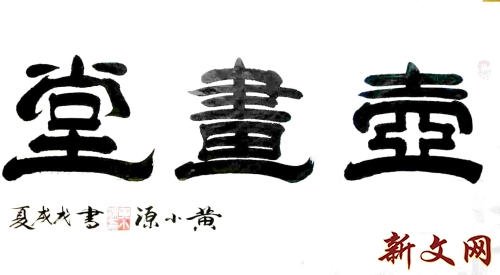 壺畫堂
黄小源書戊戌夏
新文网